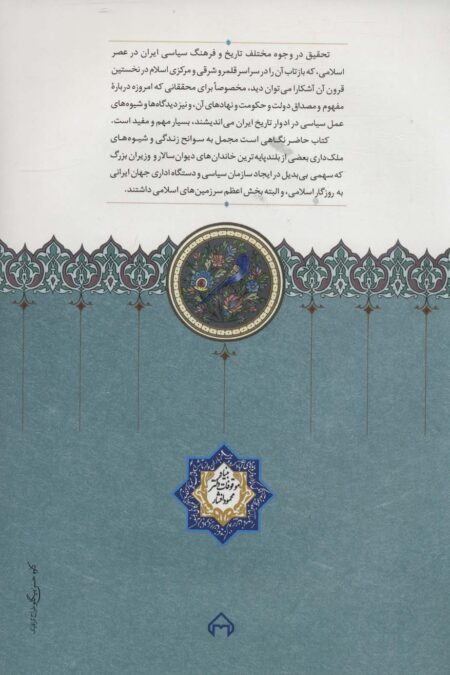 تحقیق در وجوه مختلف تاریخ و فرهنگ سیاسی ایران در عصر
اسلامی، که بازتاب آن را در سراسر قلمرو شرقی و مرکزی اسلام در نخستین
قرون آن آشکارا می‌توان دید، مخصوصاً برای محققانی که امروزه دربارهٔ
مفهوم و مصداق دولت و حکومت و نهادهای آن، و نیز دیدگاه‌ها و شیوه‌های
عمل سیاسی در ادوار تاریخ ایران می‌اندیشند، بسیار مهم و مفید است.
کتاب حاضر نگاهی است مجمل به سوانح زندگی و شیوه‌های
ملک‌داری بعضی از بلندپایه‌ترین خاندان‌های دیوان‌سالار و وزیران بزرگ
که سهمی بی‌بدیل در ایجاد سازمان سیاسی و دستگاه اداری جهان ایرانی
به روزگار اسلامی، و البته بخش اعظم سرزمین‌های اسلامی داشتند.
بنیاد
موقوفات دکتر
محمود افشار